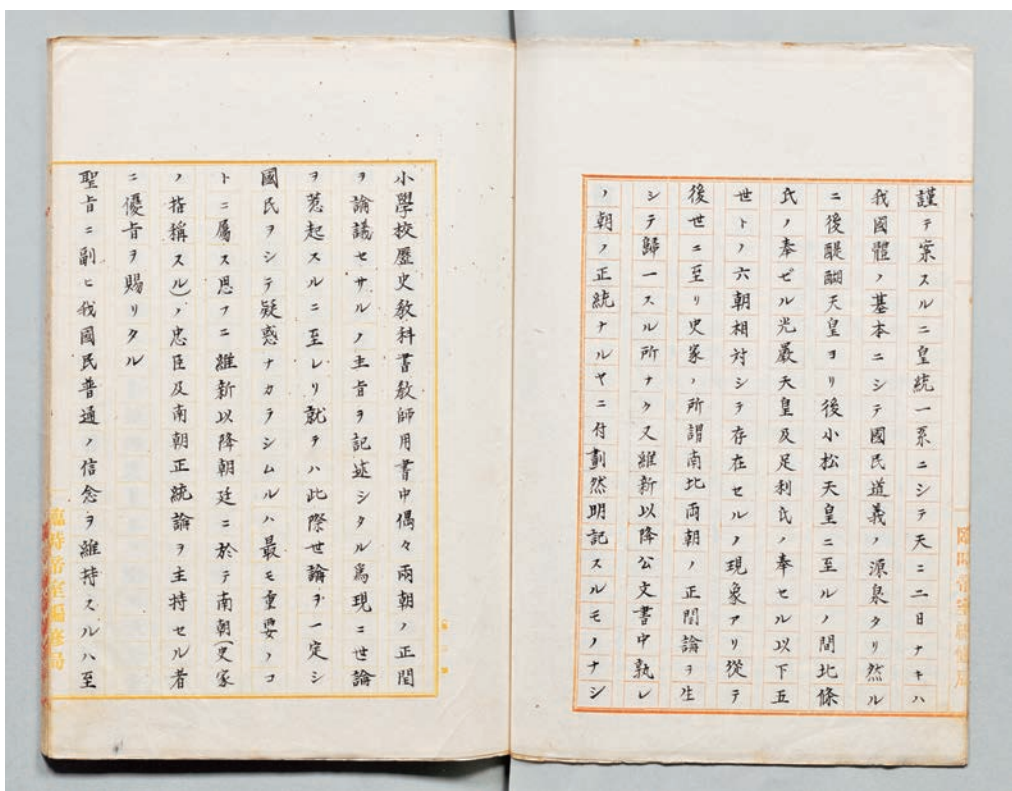 謹テ案スルニ皇統一系ニシテ天ニ二日ナキハ
我國體ノ基本ニシテ國民道義ノ源泉タリ然ル
ニ後醍醐天皇ヨリ後小松天皇ニ至ルノ間北條
氏ノ奉ゼル光嚴天皇及足利氏ノ奉セル以下五
世トノ六朝相対シテ存在セルノ現象アリ從テ
後世ニ至リ史家ノ所謂南北両朝ノ正閏論ヲ生
シテ歸一スル所ナク又維新以降公文書中孰レ
ノ朝ノ正統ナルヤニ付劃然明記スルモノナシ
臨時帝室編修局
小學校歴史教科書教師用書中偶々兩朝ノ正閏
ヲ論議セサルノ主旨ヲ記述シタル爲現ニ世論
ヲ惹起スルニ至レリ就テハ此際世論ヲ一定シ
國民ヲシテ疑惑ナカラシムルハ最モ重要ノコ
トニ屬ス思フニ維新以降朝廷ニ於テ南朝(史家
ノ指稱スル)ノ忠臣及南朝正統論ヲ主持セル者
ニ優旨ヲ賜リタル
聖旨ニ副ヒ我國民普通ノ信念ヲ維持スルハ至
臨時帝室編修局